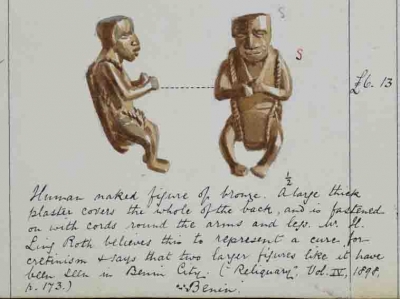 S
S
£6.13
1/2
Human naked figure of bronze. A large thick
plaster covers the whole of the back, and is fastened
on with cords round the arms and legs. W. H.
Ling Roth believes this to represent a cure for
cretinism & says that two larger figures like it have
been seen in Benin City. ("Reliquary", Vol. IV, 1898.
p. 173.)
Benin.